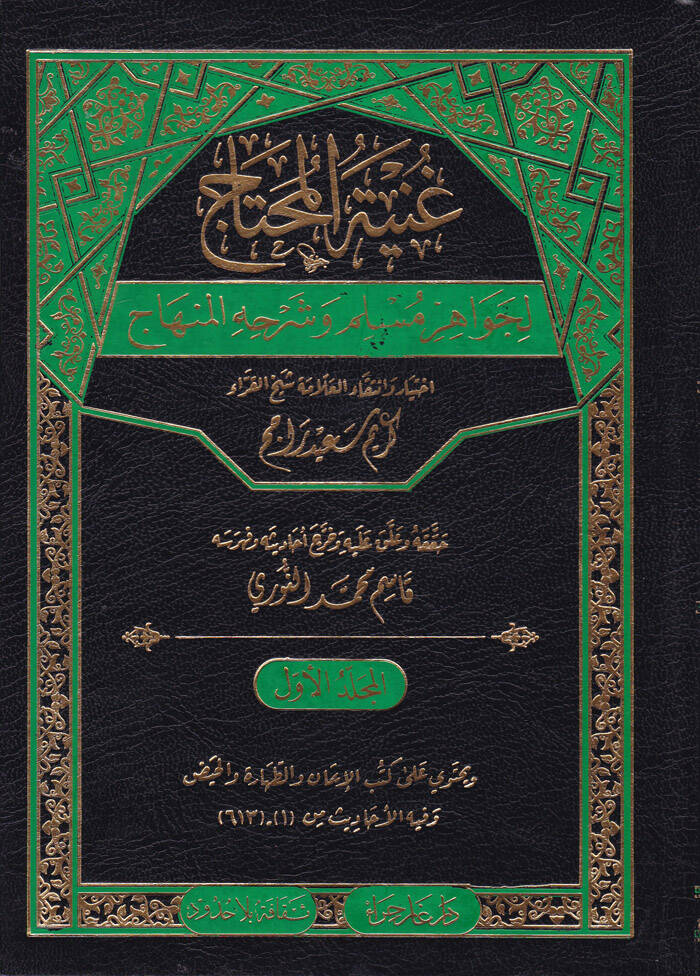 غُنْيَةُ المُحْتَاج
لِجَوَاهِرِ مُسْلِم وَشَرْحِهِ المِنْهَاج
اختيار وانتقاء العلّامة شيخ القرّاء
كريّم سعيد راجح
حَقَّقَهُ وعَلَّقَ عَلَيهِ وَخَرَّجَ أحَاديثه وفهرسه
قاسم محمد النُّوري
المجَلد الأوَّل
ويحتوي على كتب الإيمان والطهارة والحيض
وفيه الأحاديث من (١)-(٦١٣)
دار غار حراء
ثقافة بلا حدود